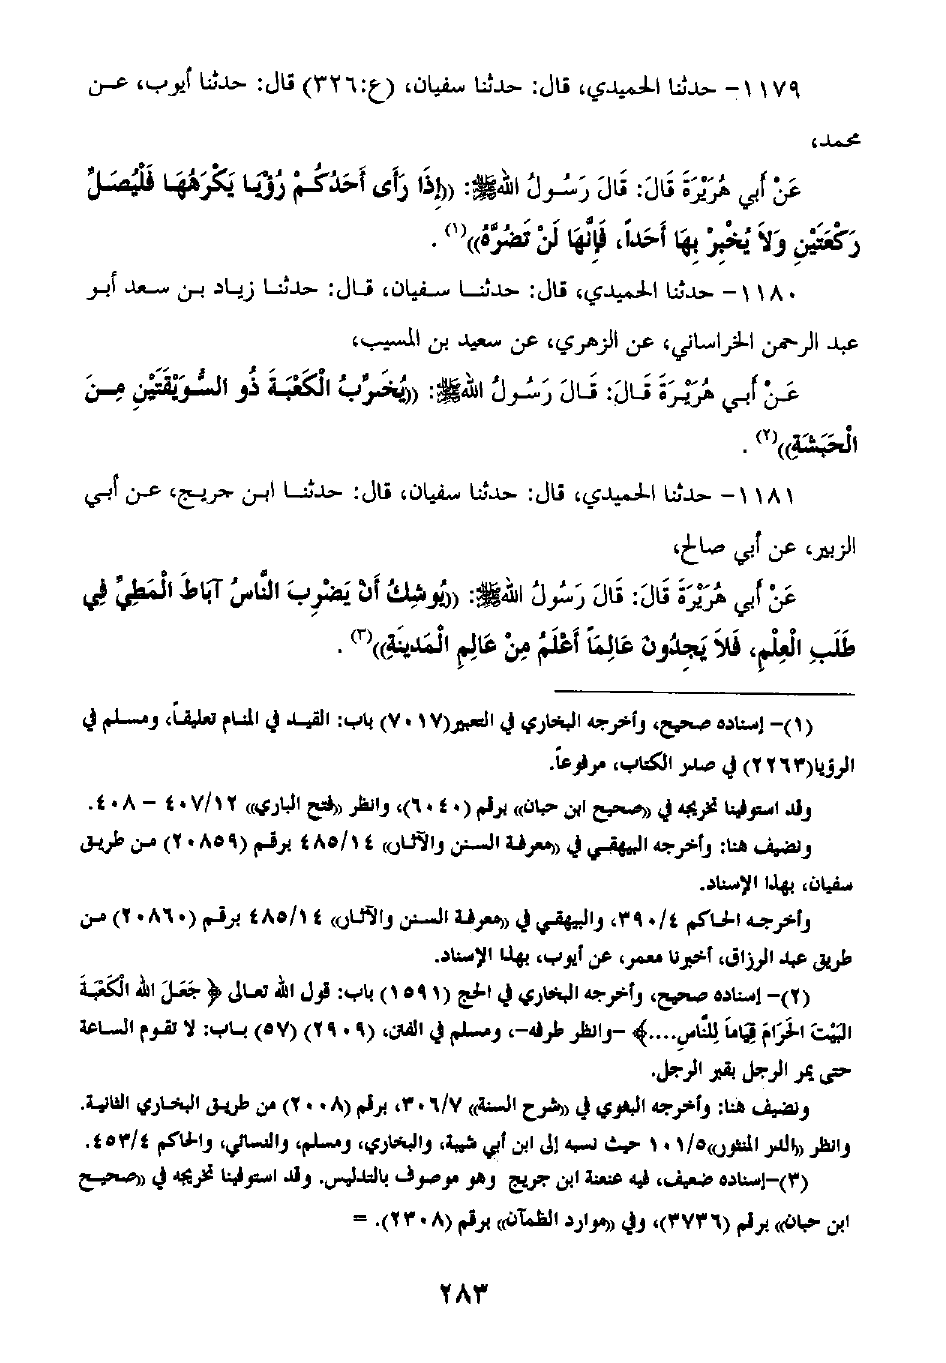 ١١٧٩- حدثنا الحميدي، قال: حدثنا سفيان، (ع:٣٢٦) قال: حدثنا أيوب، عـن
محمد،
عَنْ أَبِي هُرَيْرَةَ قَالَ: قَالَ رَسُولُ اللهِ ﷺ: ((إِذَا رَأَى أَحَدُكُمْ رُؤْيَا يَكْرَهُهَا فَلْيُصَلِّ
رَكْعَتَيْنِ وَلاَ يُخْبِرْ بِهَا أَحَداً، فَإِنَّهَا لَنْ تَضُرَّهُ))(١) .
١١٨٠- حدثنا الحميدي، قال: حدثنـا سفيان، قـال: حدثنـا زيـاد بـن سـعد أبـو
عبد الرحمن الخراساني، عن الزهري، عن سعيد بن المسيب،
عَـنْ أَبِـي هُرَيْـرَةَ قَـالَ: قَـالَ رَسُـولُ اللهِ ﷺ: ((يُخَرِّبُ الْكَعْبَةَ ذُو السُّوَيْقَتَيْنِ مِـنَ
الْحَبَشَةِ))(٢) .
١١٨١- حدثنا الحميدي، قال: حدثنا سفيان، قال: حدثنـا ابـن جريـج، عـن أبـي
الزبير، عن أبي صالح،
عَنْ أَبِي هُرَيْرَةَ قَالَ: قَالَ رَسُولُ اللهِ ﷺ: ((يُوشِكُ أَنْ يَضْرِبَ النَّاسُ آبَاطَ الْمَطِيِّ فِي
طَلَبِ الْعِلْمِ، فَلاَ يَجِدُونَ عَالِمَاً أَعْلَمُ مِنْ عَالِمِ الْمَدِينَةِ))(٣) .
(١)- إسناده صحيح، وأخرجه البخاري في التعبير(٧٠١٧) باب: القيـد في المنـام تعليقـاً، ومسـلم في
الرؤيا(٢٢٦٣) في صدر الكتاب، مرفوعاً.
وقد استوفينا تخريجه في ((صحيح ابن حبان)) برقم (٦٠٤٠)، وانظر ((فتح الباري)) ١٢/ ٤٠٧ - ٤٠٨.
ونضيف هنا: وأخرجه البيهقـي في ((معرفـة السـنن والآثـار)) ١٤/ ٤٨٥ برقـم (٢٠٨٥٩) مـن طريـق
سفيان، بهذا الإسناد.
وأخرجـه الحـاكم ٤/ ٣٩٠، والبيهقـي في ((معرفـة السـنن والآثـار)) ١٤/ ٤٨٥ برقـم (٢٠٨٦٠) مـن
طريق عبد الرزاق، أخبرنا معمر، عن أيوب، بهذا الإسناد.
(٢)- إسناده صحيح، وأخرجه البخاري في الحج (١٥٩١) باب: قول الله تعـالى ﴿ جَعَـلَ اللهُ الْكَعْبَـةَ
الْبَيْتَ الْحَرَامَ قِيَاماً لِلنَّاسِ....﴾ -وانظر طرفه-، ومسلم في الفتن، (٢٩٠٩) (٥٧) بـاب: لا تقـوم السـاعة
حتى يمر الرجل بقبر الرجل.
ونضيف هنا: وأخرجه البغوي في ((شرح السنة)) ٧/ ٣٠٦، برقم (٢٠٠٨) من طريق البخاري الثانية.
وانظر ((الدر المنثور))٥/ ١٠١ حيث نسبه إلى ابن أبي شيبة، والبخاري، ومسلم، والنسائي، والحاكم ٤/ ٤٥٣.
(٣)-إسناده ضعيف، فيه عنعنة ابن جريج وهو موصوف بالتدليس. وقد استوفينا تخريجه في ((صحيـح
ابن حبان)) برقم (٣٧٣٦)، وفي ((موارد الظمآن)) برقم (٢٣٠٨). =
٢٨٣